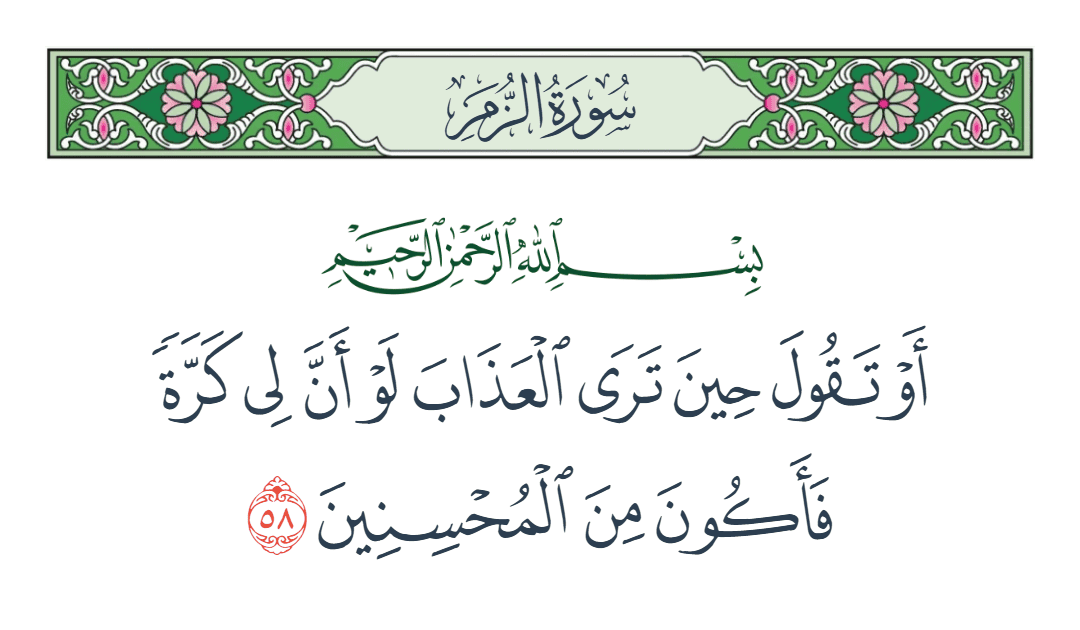 سُورَةُ الزُّمَرِ
بِسْمِ ٱللَّهِ ٱلرَّحْمَٰنِ ٱلرَّحِيمِ
أَوْ تَقُولَ حِينَ تَرَى ٱلْعَذَابَ لَوْ أَنَّ لِى كَرَّةً
فَأَكُونَ مِنَ ٱلْمُحْسِنِينَ ٥٨